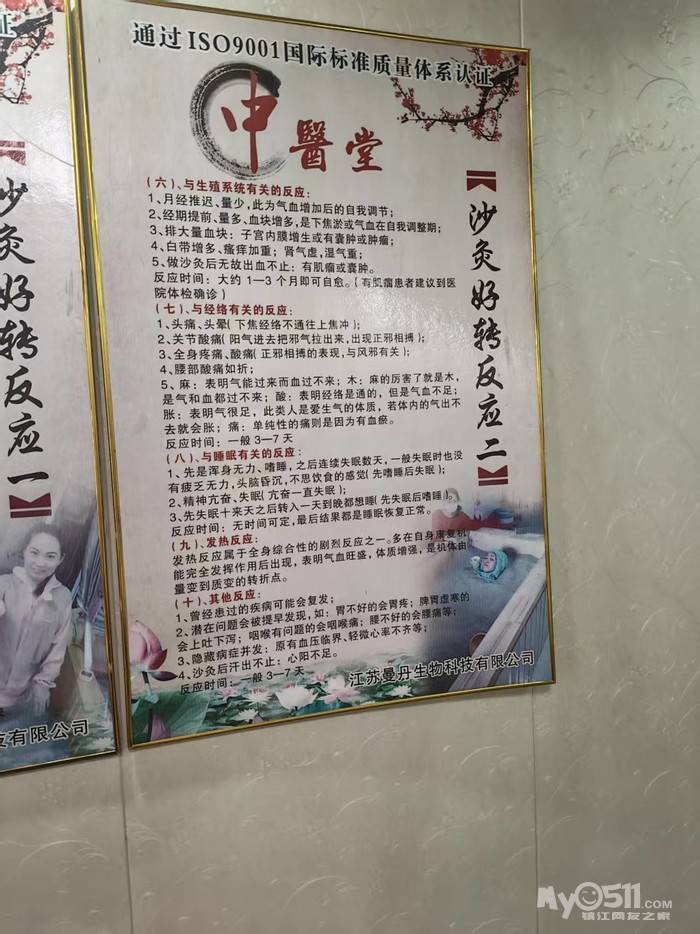 证
沙灸好转反应一
技有限公司
通过ISO9001国际标准质量体系认证
中醫堂
沙灸好转反应二
(六)、与生殖系统有关的反应:
1、月经推迟、量少,此为气血增加后的自我调节;
2、经期提前、量多、血块增多,是下焦淤或气血在自我调整期;
3、排大量血块:子宫内膜增生或有囊肿或肿瘤;
4、白带增多、瘙痒加重;肾气虚,湿气重;
5、做沙灸后无故出血不止:有肌瘤或囊肿。
反应时间:大约1—3个月即可自愈。(有肌瘤患者建议到医
院体检确诊)
(七)、与经络有关的反应:
1、头痛、头晕(下焦经络不通往上焦冲);
2、关节酸痛(阳气进去把邪气拉出来,出现正邪相搏);
3、全身疼痛、酸痛(正邪相搏的表现,与风邪有关);
4、腰部酸痛如折;
5、麻:表明气能过来而血过不来;木:麻的厉害了就是木,
是气和血都过不来;酸:表明经络是通的,但是气血不足;
胀:表明气很足,此类人是爱生气的体质,若体内的气出不
去就会胀;痛:单纯性的痛则是因为有血瘀。
反应时间:一般3—7天
(八)、与睡眠有关的反应:
1、先是浑身无力、嗜睡,之后连续失眠数天,一般失眠时也没
有疲乏无力,头脑昏沉,不思饮食的感觉(先嗜睡后失眠);
2、精神亢奋、失眠(亢奋一直失眠);
3、先失眠十来天之后转入一天到晚都想睡(先失眠后嗜睡)。
反应时间:无时间可定,最后结果都是睡眠恢复正常。
(九)、发热反应:
发热反应属于全身综合性的剧烈反应之一。多在自身康复机
能完全发挥作用后出现,表明气血旺盛,体质增强,是机体由
量变到质变的转折点。
(十)、其他反应:
1、曾经患过的疾病可能会复发;
2、潜在问题会被提早发现,如:胃不好的会胃疼;脾胃虚寒的
会上吐下泻;咽喉有问题的会咽喉痛;腰不好的会腰痛等;
3、隐藏病症并发:原有血压临界、轻微心率不齐等;
4、沙灸后汗出不止:心阳不足。
反应时间:一般3—7天
江苏曼丹生物科技有限公司
My0511.com
镇江网友之家